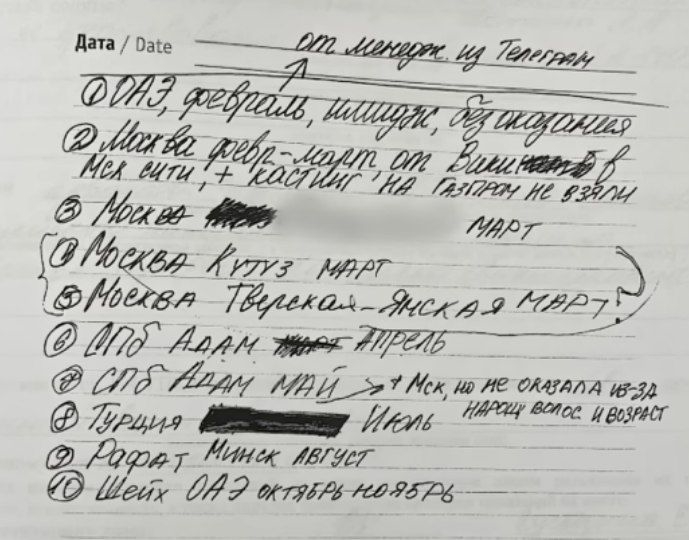 Дата / Date
от менедж. из Телеграм
① ОАЭ, февраль, имидж, без оказания
② Москва февр-март от Вики в
Мск сити, + кастинг на Газпром не взяли
③ Москва МАРТ
④ Москва Кутуз МАРТ
⑤ Москва Тверская-Ямская МАРТ?
⑥ СПб Адам Апрель
⑦ СПб Адам МАЙ → + Мск, но не оказала из-за
нарощ волос и возраст
⑧ Турция Июль
⑨ Рафат Минск Август
⑩ Шейх ОАЭ октябрь ноябрь